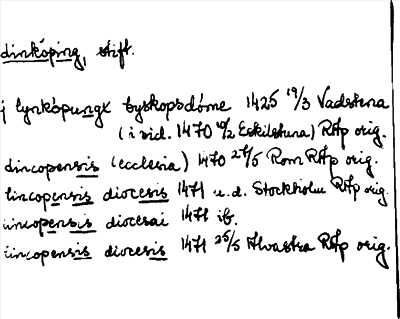 Linköping, stift.
j lynköpungx byskopsdøme 1425 19/3 Vadstena
(i vid. 1470 10/2 Eskilstuna) RAp orig.
Lincopensis (ecclesia) 1470 27/5 Rom RAp orig.
Lincopensis diocesis 1471 u.d. Stockholm RAp orig
Lincopensis diocesai 1471 ib.
Lincopensis diocesis 1471 25/5 Alvastra RAp orig.